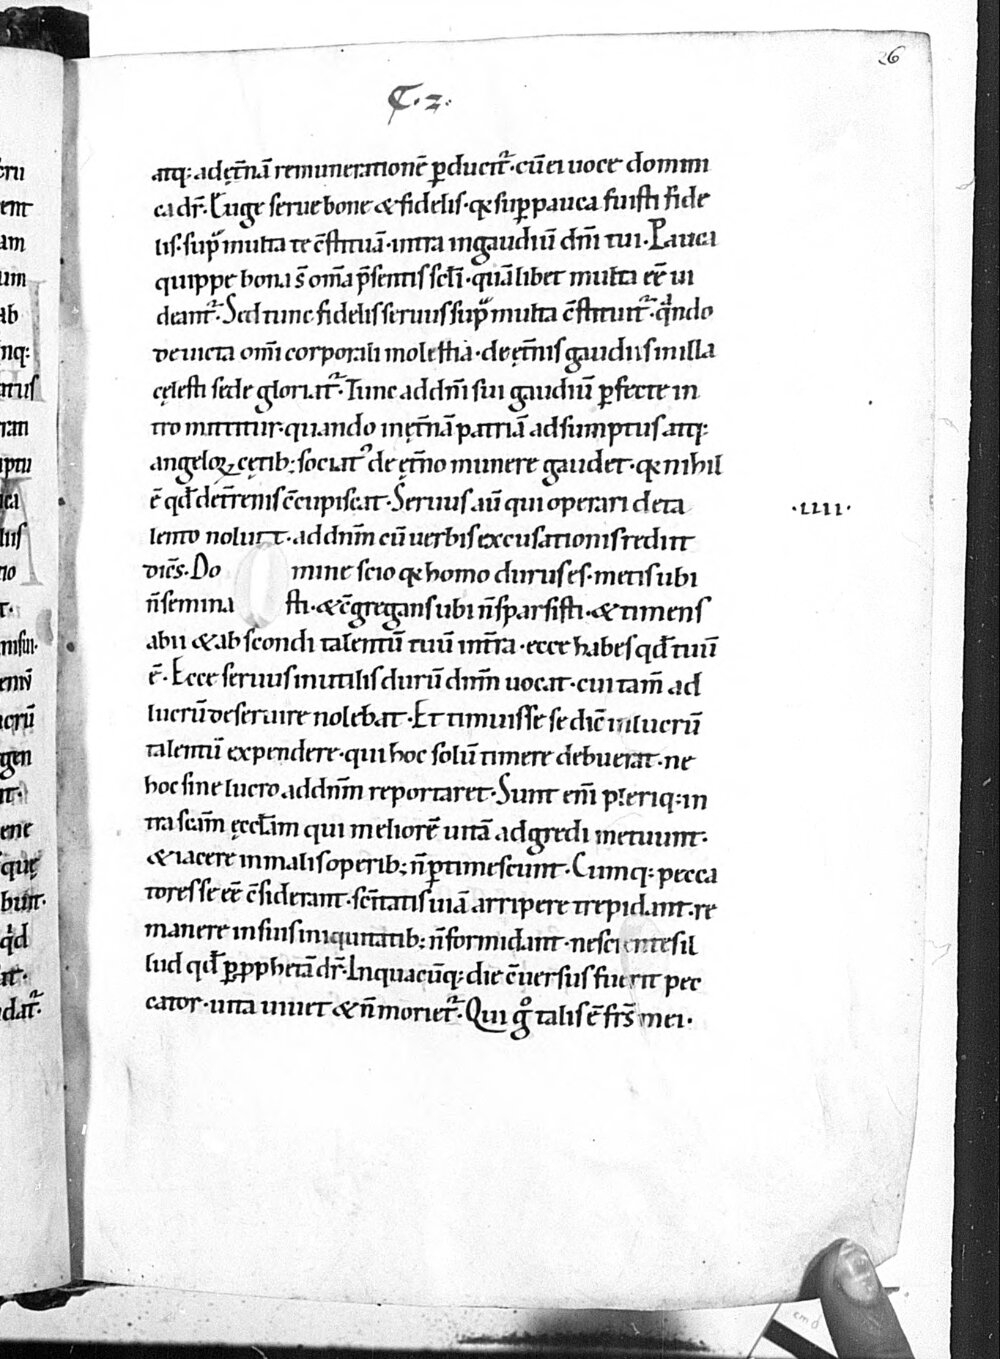 26
C.2.
atq: adęt̄nā remunerationē ꝑducit᷑. cū ei uoce domini
ca dr̄. Euge serue bone & fidelis. qꝛ sup pauca fuisti fide
lis. sup̄ multa te c̄stituā. intra in gaudiū dn̄i tui. Pauca
quippe bona s̄ om̄a p̄sentis scl̄i. quālibet multa eē ui
deant᷑. Sed tunc fidelis seruus sup̄ multa c̄stituit᷑. qn̄do
deuicta om̄i corporali molestia. de ęt̄nis gaudiis in illa
cęlesti sede gloriat᷑. Tunc ad dn̄i sui gaudiū ꝑfecte in
tro mittitur. quando in ęt̄nā patriā adsumptus atq:
angeloꝝ cętib; sociat᷑ de ęt̄no munere gaudet. qꝛ nihil
ē qđ de t̄renis c̄cupiscat. Seruus aū qui operari de ta
lento noluit. ad dn̄m cū uerbis excusationis rediit
dic̄s. Do mine scio qꝛ homo durus es. metis ubi
n̄ semina sti. & c̄gregans ubi n̄ sparsisti. & timens
abii & abscondi talentū tuū in t̄ra. ecce habes qđ tuū
ē. Ecce seruus inutilis durū dn̄m uocat. cui tam̄ ad
lucrū deseruire nolebat. Et timuisse se dic̄ in lucrū
talentū expendere. qui hoc solū timere debuerat. ne
hoc sine lucro ad dn̄m reportaret. Sunt em̄ pleriq: in
tra sc̄am ęccl̄am qui meliorē uitā adgredi metuunt.
& iacere in malis operib; n̄ ꝑtimescunt. Cumq: pecca
tores se eē c̄siderant. sc̄itatis uiā arripere trepidant. re
manere in suis iniquitatib; n̄ formidant. nescientes il
lud qđ ꝑ ꝓphetā dr̄. In quacūq: die c̄uersus fuerit pec
cator. uita uiuet & n̄ moriet᷑. Qui g̊ talis ē fr̄s mei.
.IIII.